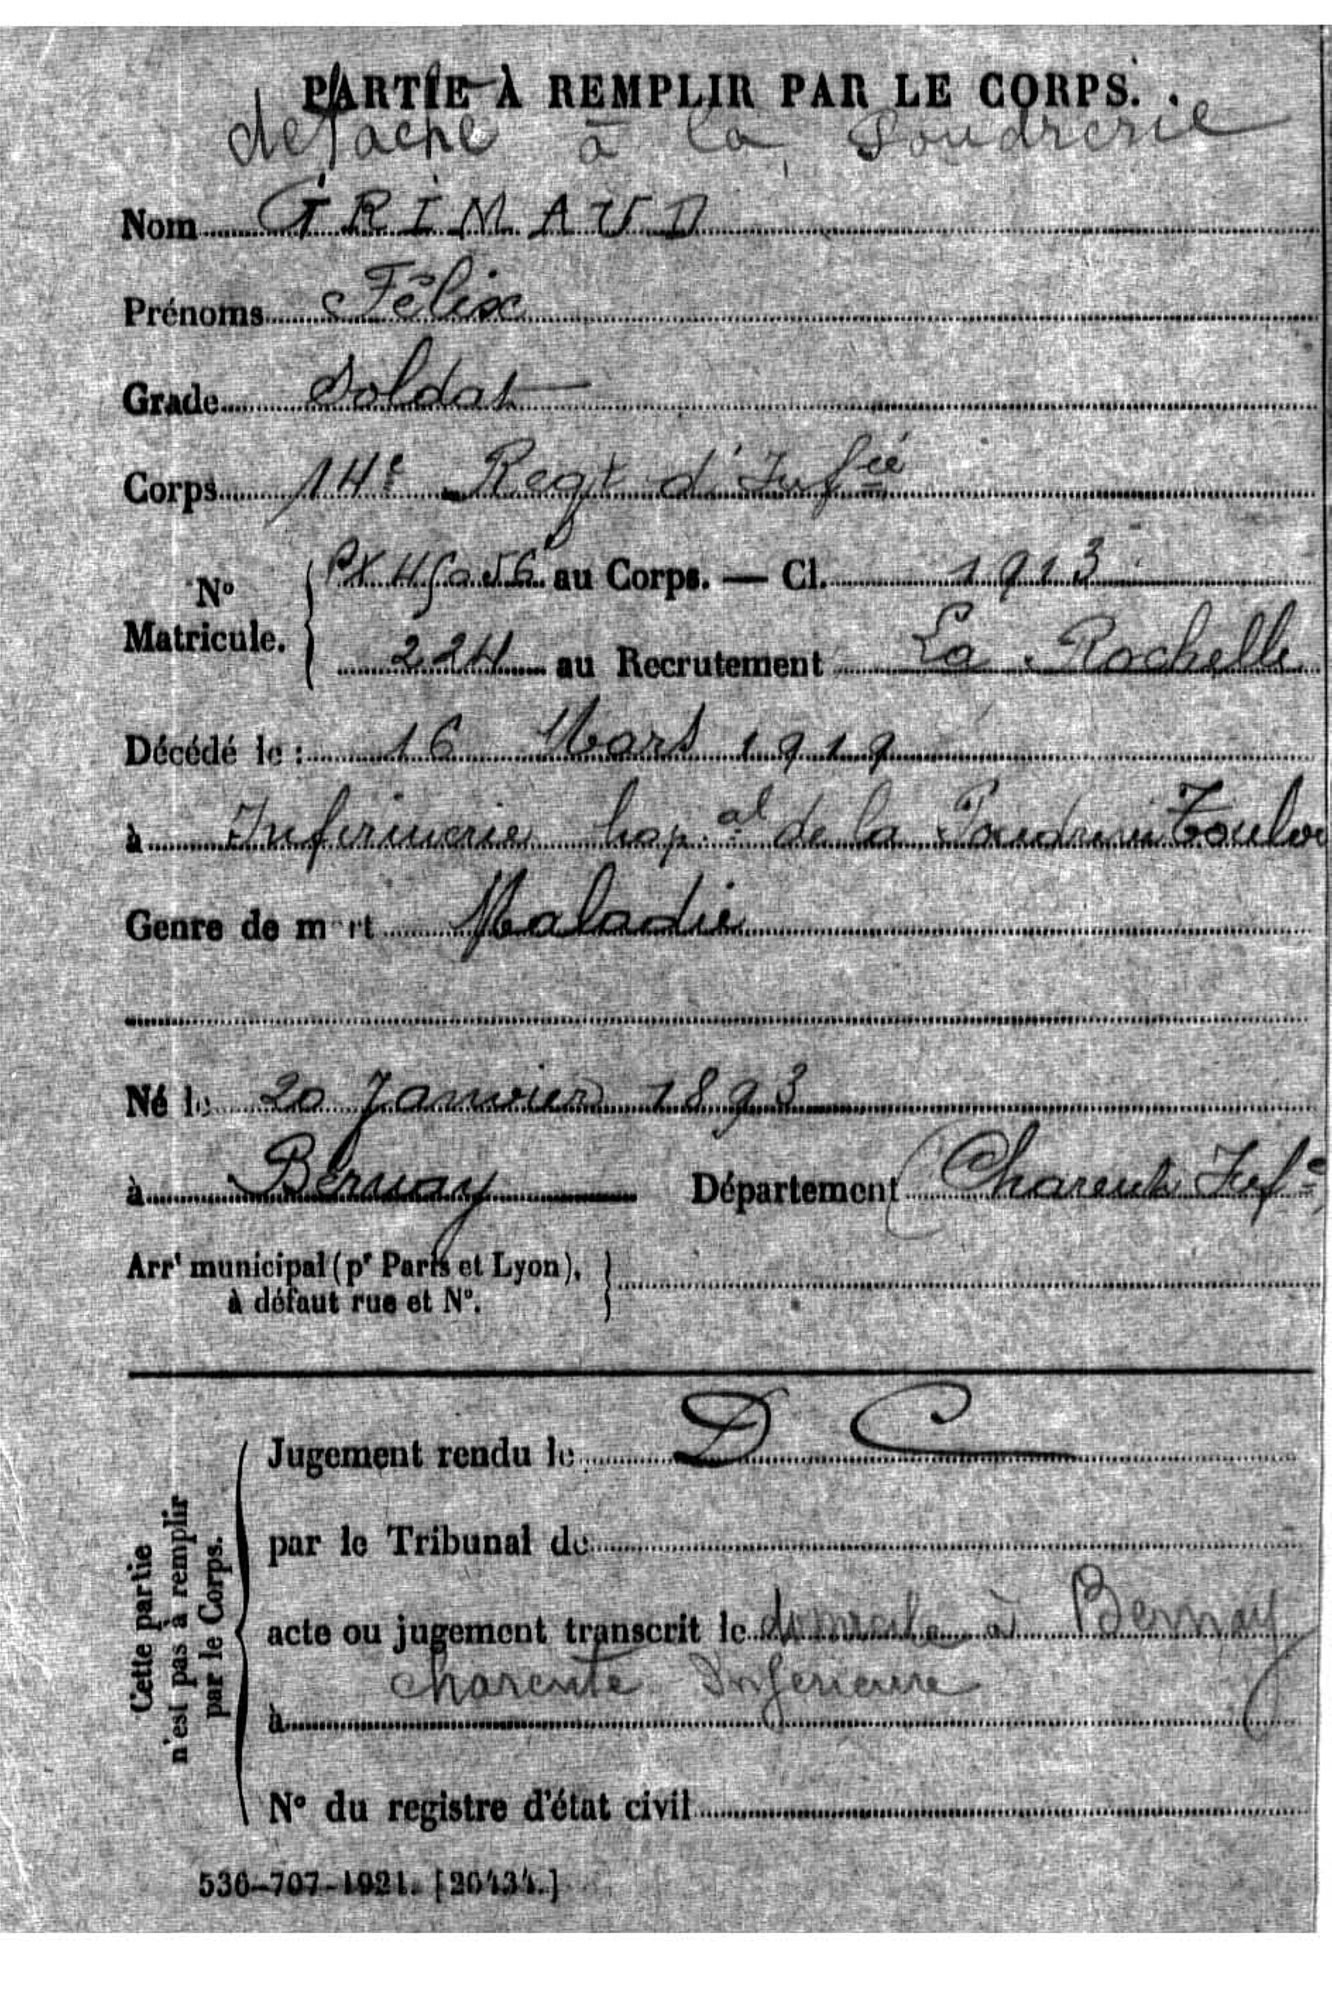 PARTIE À REMPLIR PAR LE CORPS.
détaché à la Poudrerie
Nom GRIMAUD
Prénoms Félix
Grade Soldat
Corps 14e Regt d'Infie
No Matricule. au Corps. — Cl. 1913
224 au Recrutement La Rochelle
Décédé le : 16 Mars 1919
à Infirmerie hop.al de la Poudrerie Toulou
Genre de mort Maladie
Né le 20 Janvier 1893
à Bernay Département Charente Infre
Arrt municipal (pr Paris et Lyon),
à défaut rue et No.
Cette partie
n'est pas à remplir
par le Corps.
Jugement rendu le D C
par le Tribunal de
acte ou jugement transcrit le domicile à Bernay
Charente Inferieure
à
No du registre d'état civil
536-707-1921. [26434.]